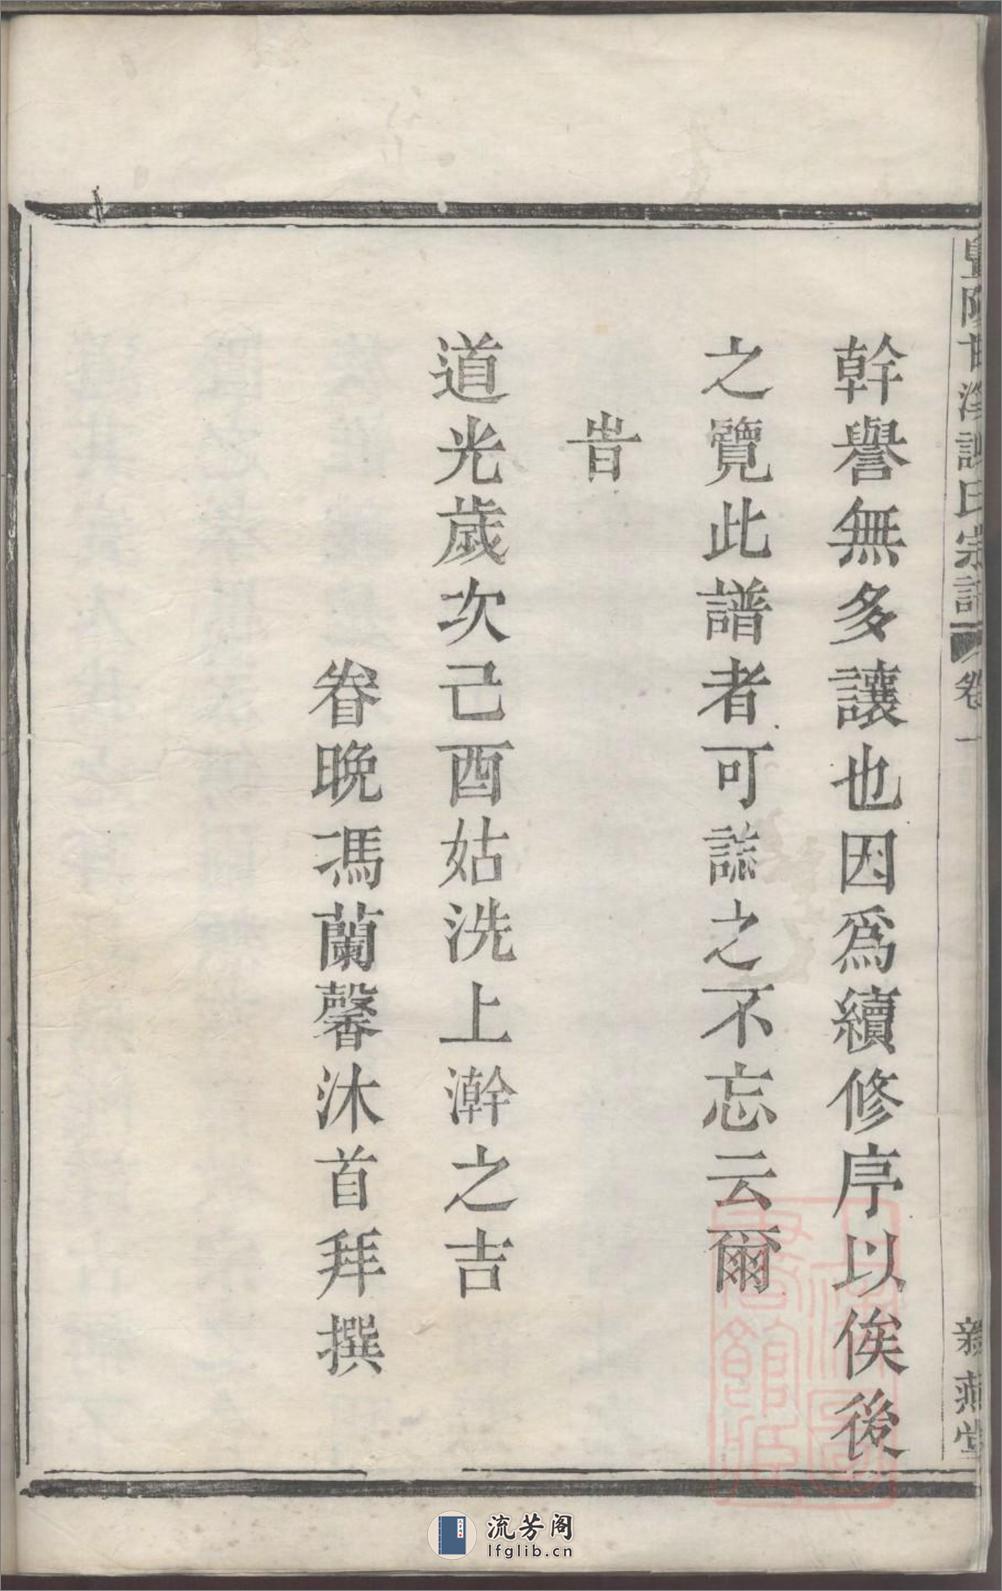 幹譽無多讓也因爲續修序以俟後
之覽此譜者可誌之不忘云爾
旹
道光歲次己酉姑洗上澣之吉
眷晚馮蘭馨沐首拜撰
氏宗譜
卷一
流芳阁
lfglib.cn